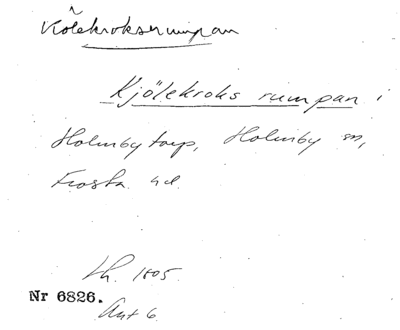 Kölekroksrumpan
Kjölekroks rumpan i
Holmby torp, Holmby sn,
Frosta hd.
Lh. 1805.
Nr 6826.
Akt 6